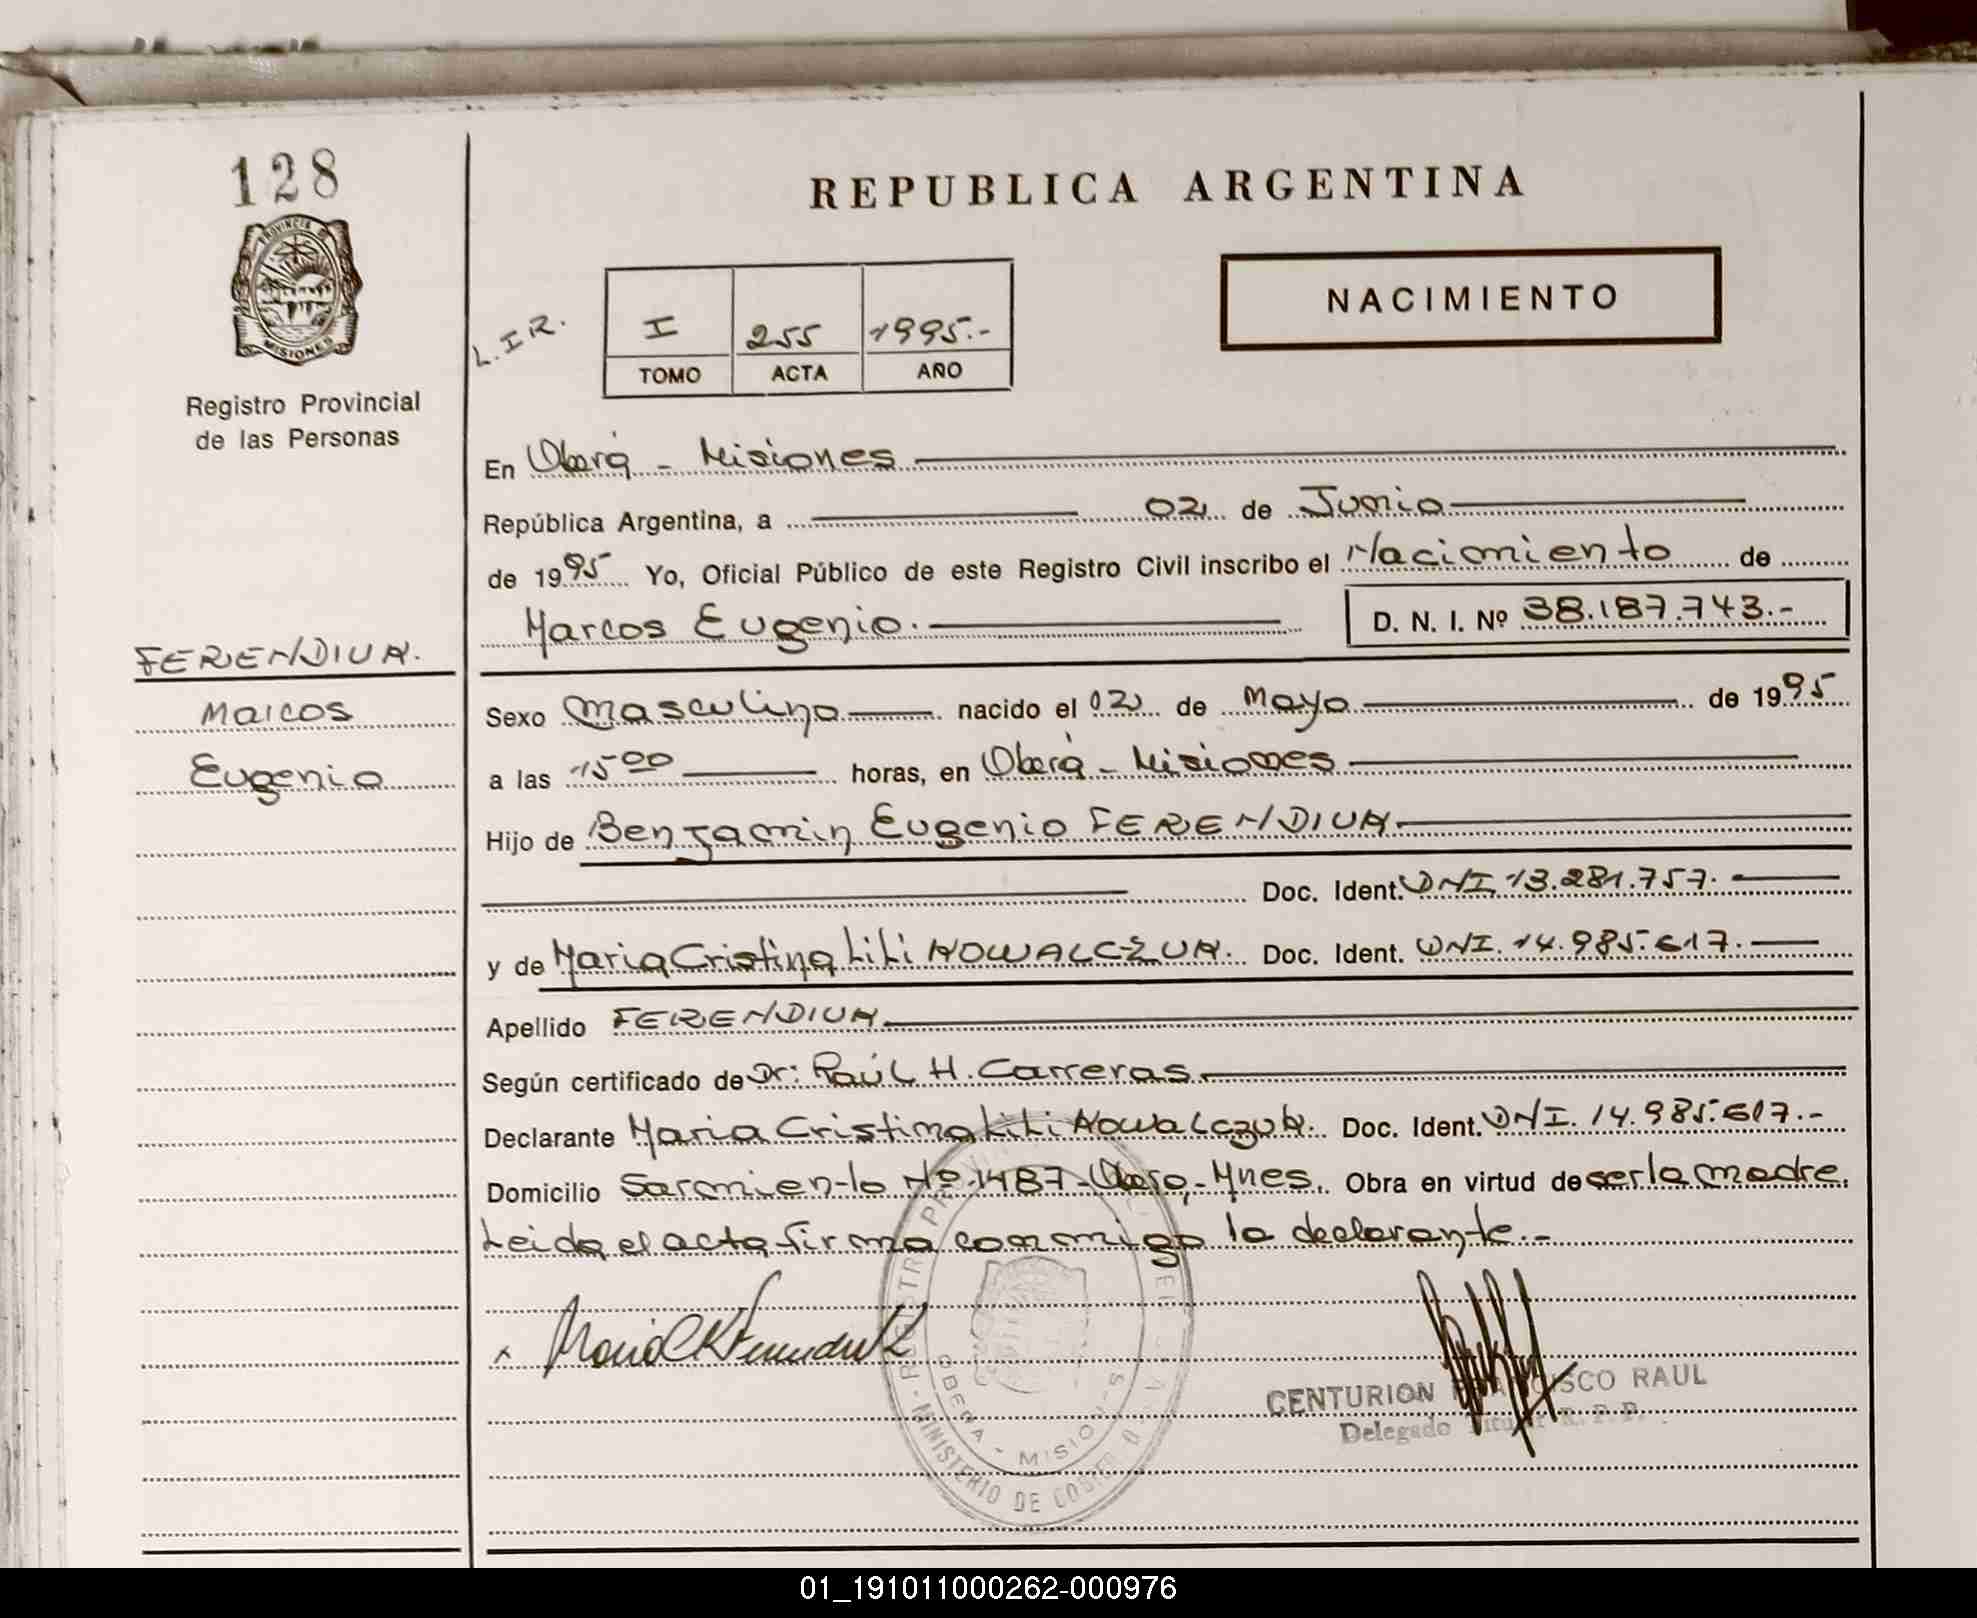 128
PROVINCIA DE
MISIONES
Registro Provincial
de las Personas
FERENDIUK.
Marcos
Eugenio
REPUBLICA ARGENTINA
NACIMIENTO
L.I.R.
I 255 1995.-
TOMO ACTA AÑO
En Oberá - Misiones
República Argentina, a 02 de Junio
de 1995 Yo, Oficial Público de este Registro Civil inscribo el Nacimiento de
Marcos Eugenio. D. N. I. Nº 38.187.743.-
Sexo masculino nacido el 02 de mayo de 1995
a las 15 00 horas, en Oberá - Misiones
Hijo de Benjamin Eugenio FERENDIUK.
Doc. Ident. DNI 13.281.757.
y de Maria Cristina Lili NOWALCZUK. Doc. Ident. DNI. 14.985.617.
Apellido FERENDIUK
Según certificado de Dr: Raúl H. Carreras.
Declarante Maria Cristina Lili Nowalczuk. Doc. Ident. DNI. 14.985.617.-
Domicilio Sarmiento Nº 1487 - Oberá, - Mnes. Obra en virtud de ser la madre.
Leida el acta firma conmigo la declarante.-
CENTURION FRANCISCO RAUL
Delegado Titular R.P.P.
OBERA - MISIONES
MINISTERIO DE GOBIERNO
01_191011000262-000976